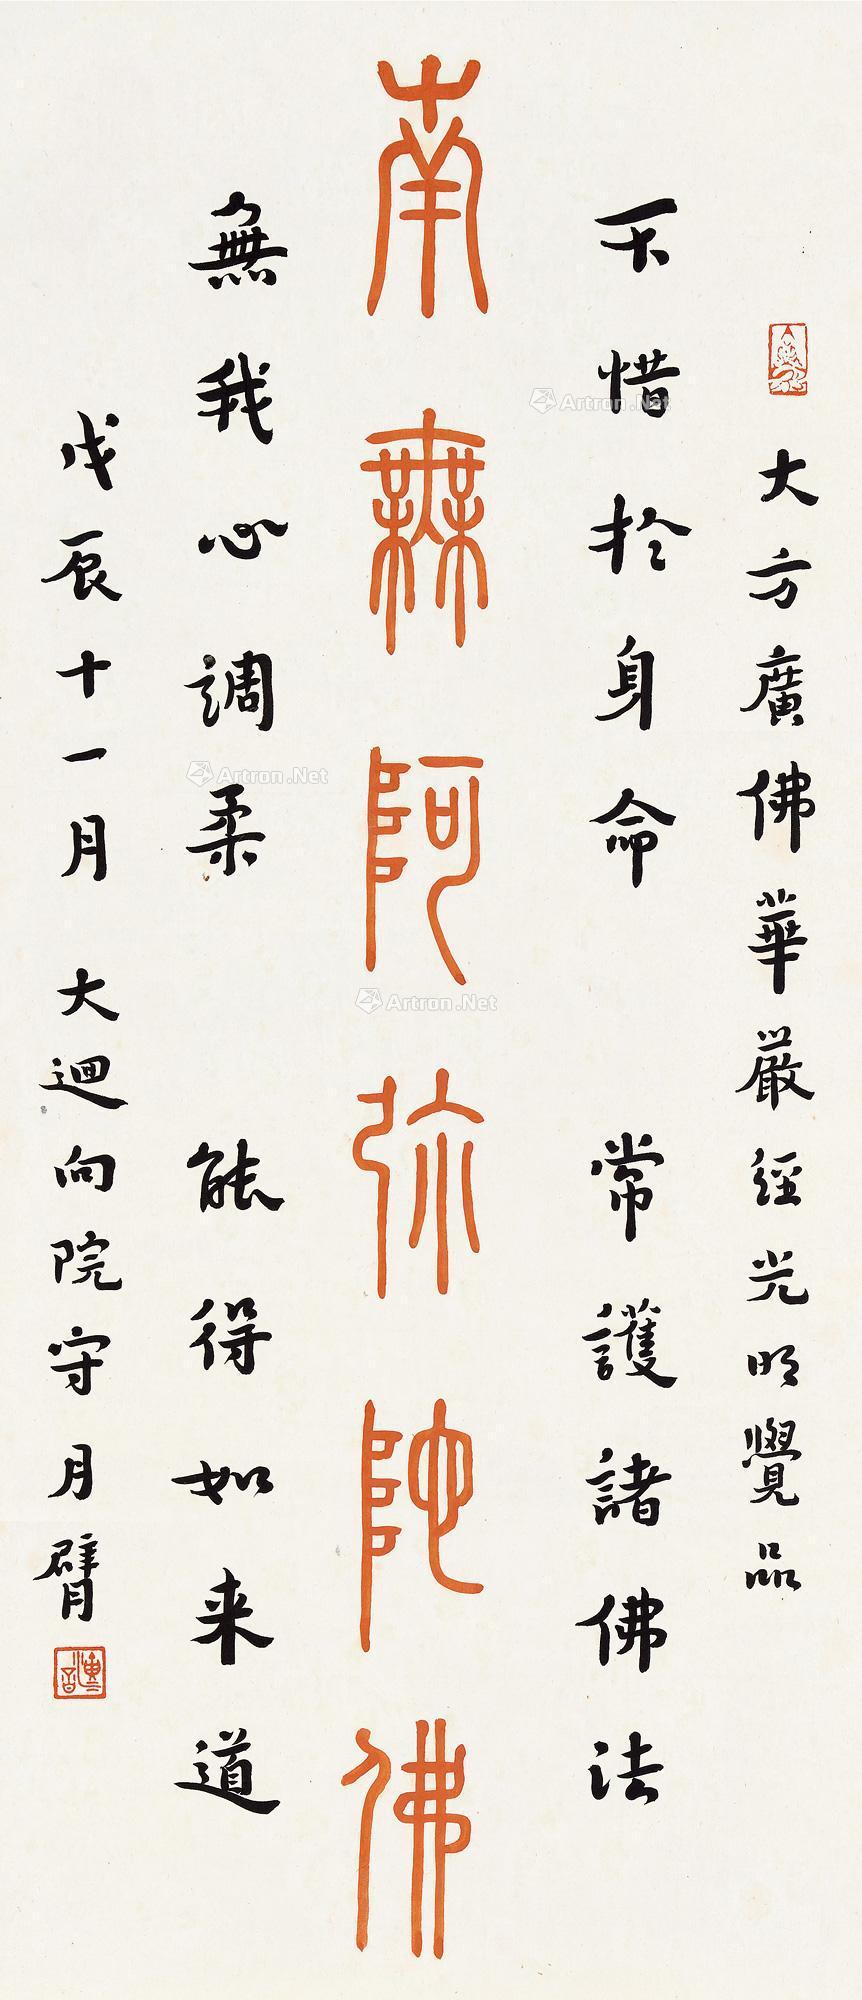 大方廣佛華嚴經光明覺品
不惜於身命 常護諸佛法
南無阿弥陀佛
無我心調柔 能得如来道
戊辰十一月 大迴向院守月臂
Artron.Net
Artron.Net
Artron.Net